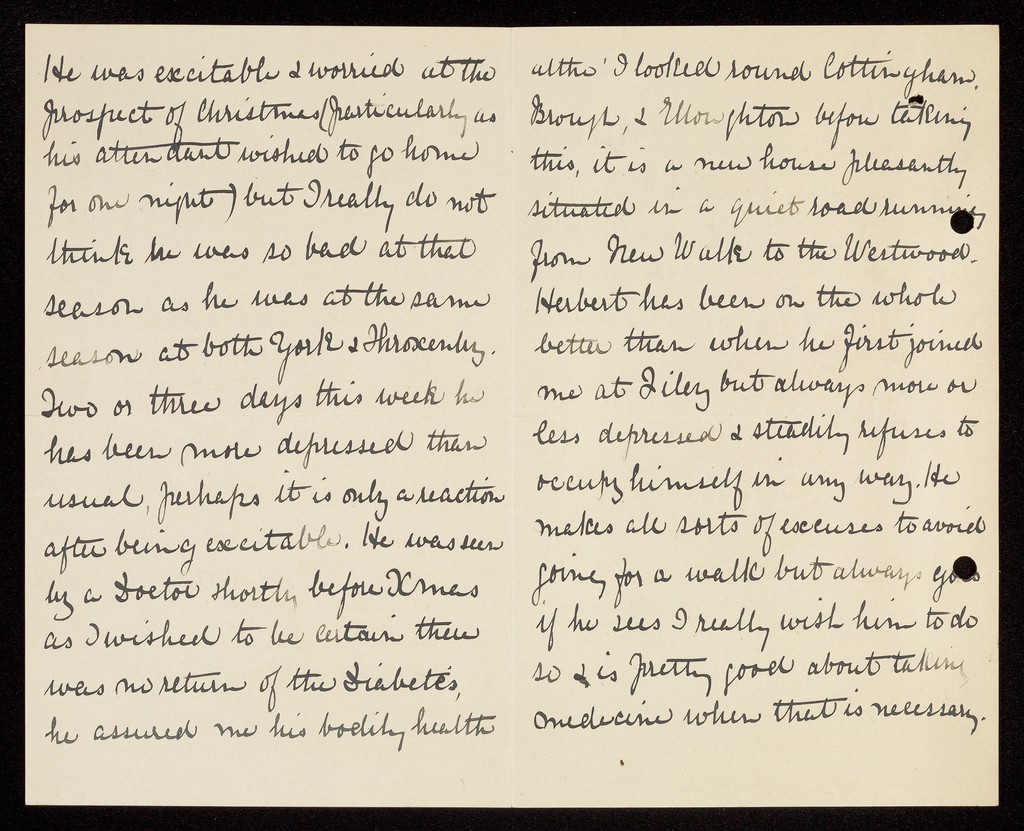 He was excitable & worried at the
prospect of Christmas (particularly as
his attendant wished to go home
for one night) but I really do not
think he was so bad at that
season as he was at the same
season at both York & Throxenby.
Two or three days this week he
has been more depressed than
usual, perhaps it is only a reaction
after being excitable. He was seen
by a Doctor shortly before Xmas
as I wished to be certain there
was no return of the Diabetes,
he assured me his bodily health
altho' I looked round Cottingham,
Brough, & Elloughton before taking
this, it is a new house pleasantly
situated in a quiet road running
from New Walk to the Westwood.
Herbert has been on the whole
better than when he first joined
me at Filey but always more or
less depressed & steadily refuses to
occupy himself in any way. He
makes all sorts of excuses to avoid
going for a walk but always goes
if he sees I really wish him to do
so & is pretty good about taking
medecine when that is necessary.